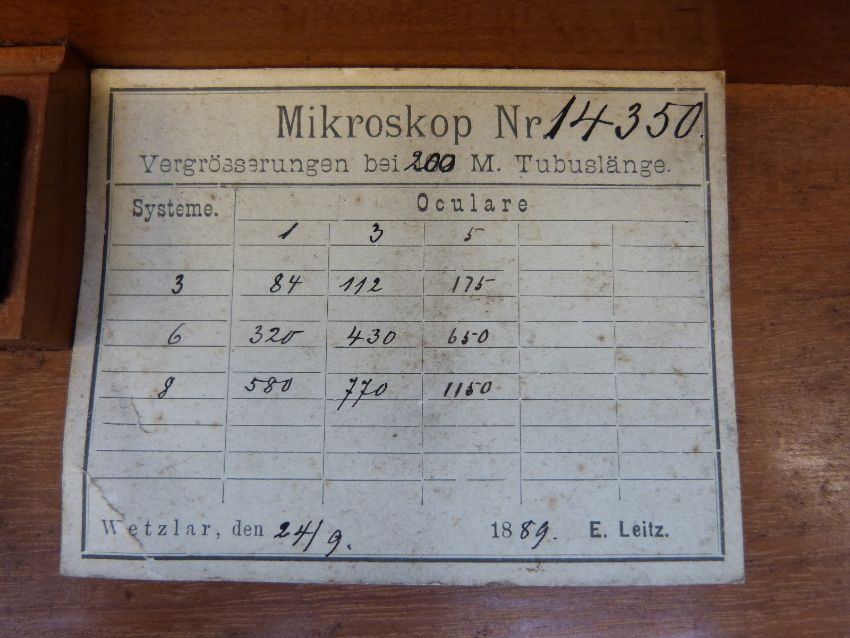 Mikroskop Nr 14350.
Vergrösserungen bei 200 M. Tubuslänge.
Systeme. Oculare
1 3 5
3 84 112 175
6 320 430 650
8 580 770 1150
Wetzlar, den 24/9. 1889. E. Leitz.